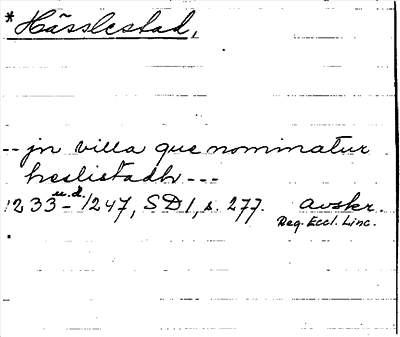 * Hässlestad,
-- jn villa que nominatur
heslistadh ---
1233 - u.d. 1247, SD 1, s. 277. avskr.
Reg. Eccl. Linc.